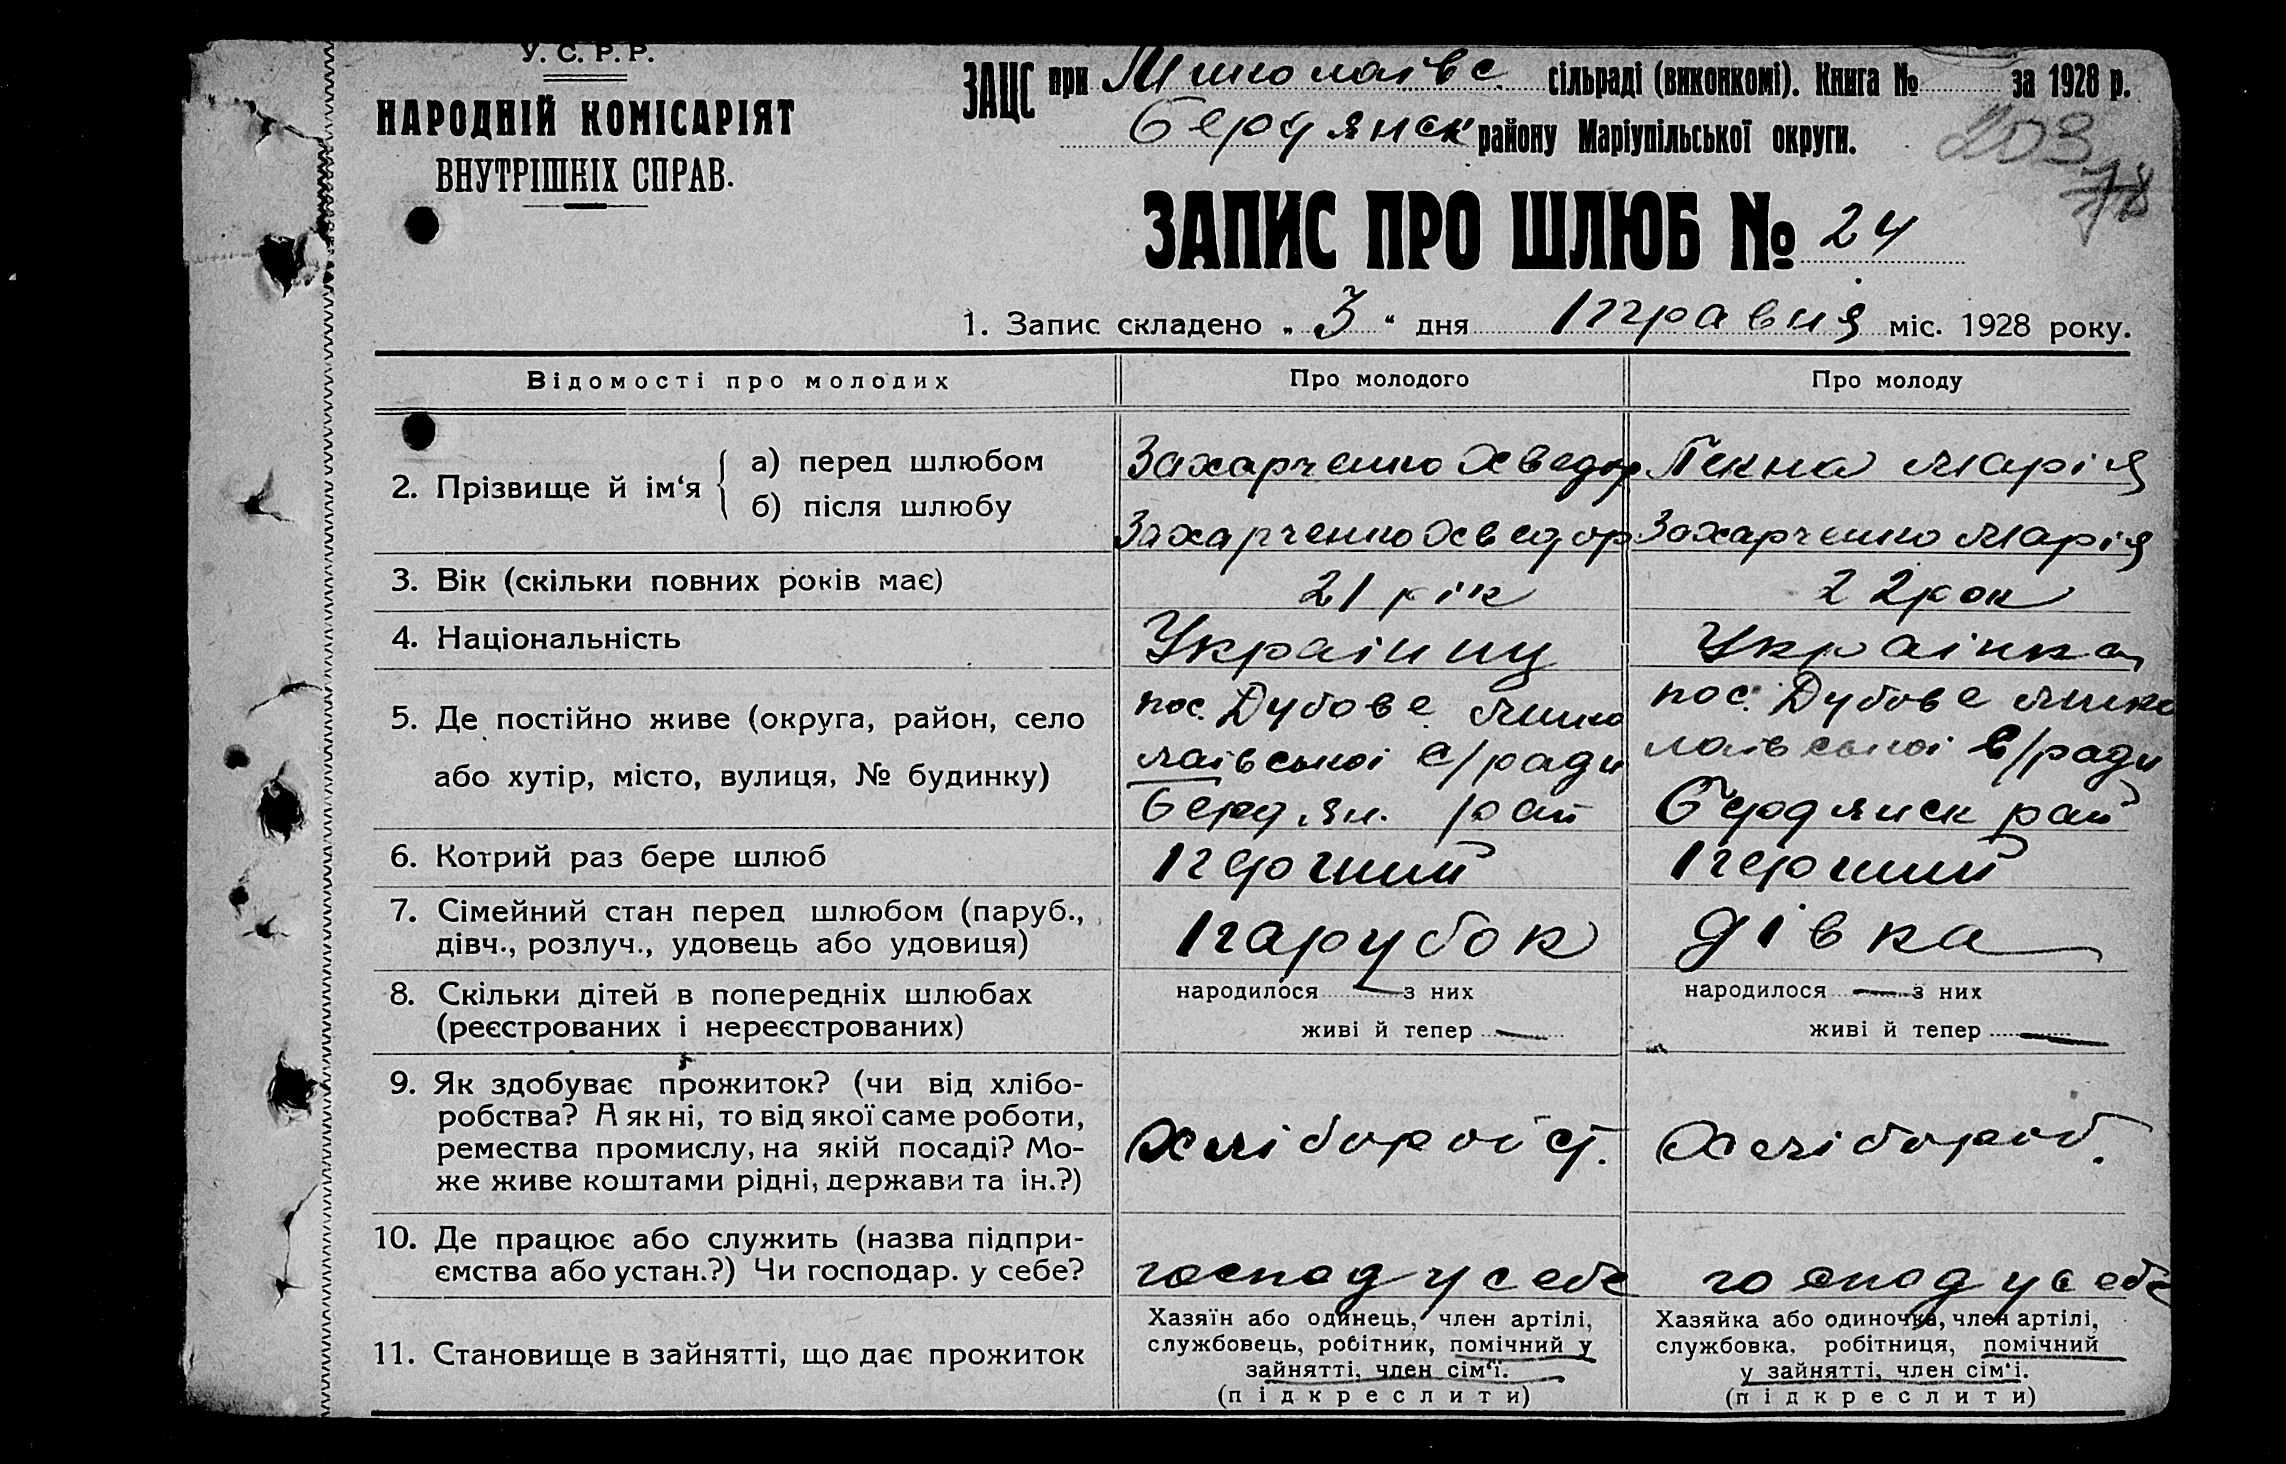 У. С. Р. Р.
НАРОДНІЙ КОМІСАРІЯТ
ВНУТРІШНІХ СПРАВ.
ЗАЦС при Миколаївс сільраді (виконкомі). Книга № за 1928 р.
Бердянск району Маріупільської округи.
203
78
ЗАПИС ПРО ШЛЮБ № 24
1. Запис складено „ 3 “ дня травня міс. 1928 року.
Відомості про молодих Про молодого Про молоду
2. Прізвище й ім‘я
а) перед шлюбом Захарченко Хведор Пекна Марія
б) після шлюбу Захарченко Хведор Захарченко Марія
3. Вік (скільки повних років має) 21 рік 22 рок
4. Національність Українц Українка
5. Де постійно живе (округа, район, село
або хутір, місто, вулиця, № будинку)
пос. Дубове Мико
лаївської с/ради
Бердян. рай
пос. Дубове Мико
лаївської с/ради
Бердянск рай
6. Котрий раз бере шлюб перший перший
7. Сімейний стан перед шлюбом (паруб.,
дівч., розлуч., удовець або удовиця) парубок дівка
8. Скільки дітей в попередніх шлюбах
(реєстрованих і нереєстрованих)
народилося — з них
живі й тепер —
народилося — з них
живі й тепер —
9. Як здобуває прожиток? (чи від хлібо-
робства? А як ні, то від якої саме роботи,
ремества промислу, на якій посаді? Мо-
же живе коштами рідні, держави та ін.?)
Хліборобст. Хлібороб.
10. Де працює або служить (назва підпри-
ємства або устан.?) Чи господар. у себе?
господ у себе господ у себе
11. Становище в зайнятті, що дає прожиток
Хазяїн або одинець, член артілі,
службовець, робітник, помічний у
зайнятті, член сім‘ї.
(підкреслити)
Хазяйка або одиночка, член артілі,
службовка, робітниця, помічний
у зайнятті, член сім‘і.
(підкреслити)